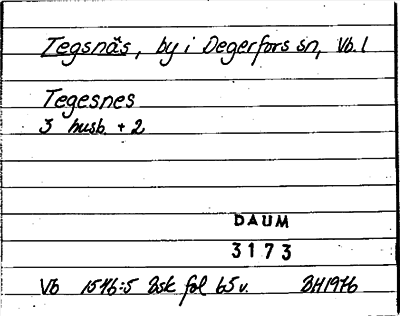 Tegsnäs, by i Degerfors sn, Vb. l
Tegesnes
3 husb. + 2
DAUM
3173
Vb 1546:5 Bsk fol 65v. BH1976